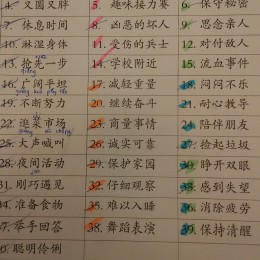 4. 又圆又胖 5. 趣味接力赛 6. 保守秘密
7. 休息时间 8. 凶恶的坏人 9. 思念亲人
10. 淋湿身体 11. 受伤的兵士 12. 对付敌人
13. 抢先一步 14. 学校附近 15. 流血事件
16. 广阔平坦 17. 减轻重量 18. 闷闷不乐
19. 不断努力 20. 继续奋斗 21. 耐心教导
22. 逛菜市场 23. 商量事情 24. 陪伴朋友
25. 大声喊叫 26. 诚实可靠 27. 捡起垃圾
28. 夜间活动 29. 保护家园 30. 睁开双眼
31. 刚巧遇见 32. 仔细观察 33. 感到失望
34. 准备食物 35. 难以入睡 36. 消除疲劳
37. 举手回答 38. 舞蹈表演 39. 保持清醒
40. 聪明伶俐